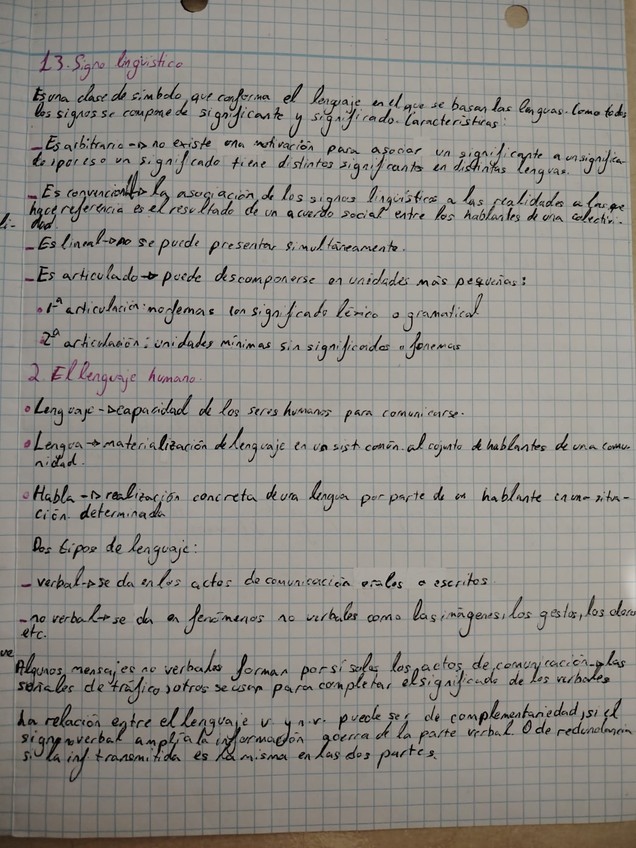 1.3. Signo lingüístico
Es una clase de símbolo, que conforma el lenguaje en el que se basan las lenguas. Como todos
los signos se compone de significante y significado. Características:
- Es arbitrario → no existe una motivación para asociar un significante a un significa-
do, por eso un significado tiene distintos significantes en distintas lenguas.
- Es convencional → la asociación de los signos lingüísticos a las realidades a las que
hace referencia es el resultado de un acuerdo social entre los hablantes de una colectivi-
dad.
- Es lineal → no se puede presentar simultáneamente.
- Es articulado → puede descomponerse en unidades más pequeñas:
• 1ª articulación: morfemas con significado léxico o gramatical
• 2ª articulación: unidades mínimas sin significados o fonemas
2. El lenguaje humano.
• Lenguaje → capacidad de los seres humanos para comunicarse.
• Lengua → materialización de lenguaje en un sist común al cojunto de hablantes de una comu-
nidad.
• Habla → realización concreta de una lengua por parte de un hablante en una situa-
ción determinada
Dos tipos de lenguaje:
- verbal → se da en los actos de comunicación orales o escritos
- no verbal → se da en fenómenos no verbales como las imágenes, los gestos, los
etc.
Algunos mensajes no verbales forman por sí solos los actos de comunicación → las
señales de tráfico, otros se usan para completar el significado de los verbales
La relación entre el lenguaje v. y n.v. puede ser de complementariedad, si el
signo no verbal amplía la información acerca de la parte verbal. O de redundancia
si la inf transmitida es la misma en las dos partes.